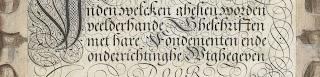 Inden welcken ghesien worden
veelderhande Gheschriften
met hare Fondementen ende
onderrichtinghe Wtghegeven